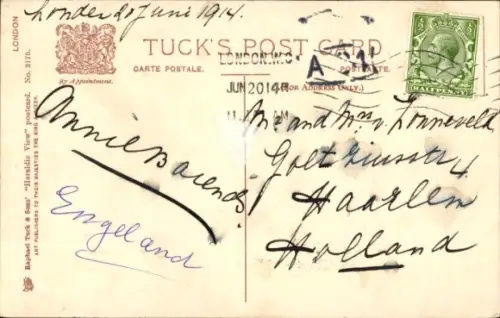 Londen 20 Juni 1914.
LONDON
TUCK'S POST CARD
By Appointment.
CARTE POSTALE.
POSTKARTE.
(FOR ADDRESS ONLY.)
LONDON.W.C
JUN 20 14
A 1
HALFPENNY
No. 2175.
Raphael Tuck & Sons' "Heraldic View" postcard.
ART PUBLISHERS TO THEIR MAJESTIES THE KING
Annie Barends.
Engeland
Mr and Mrs v. Zonneveld
4
Haarlem
Holland